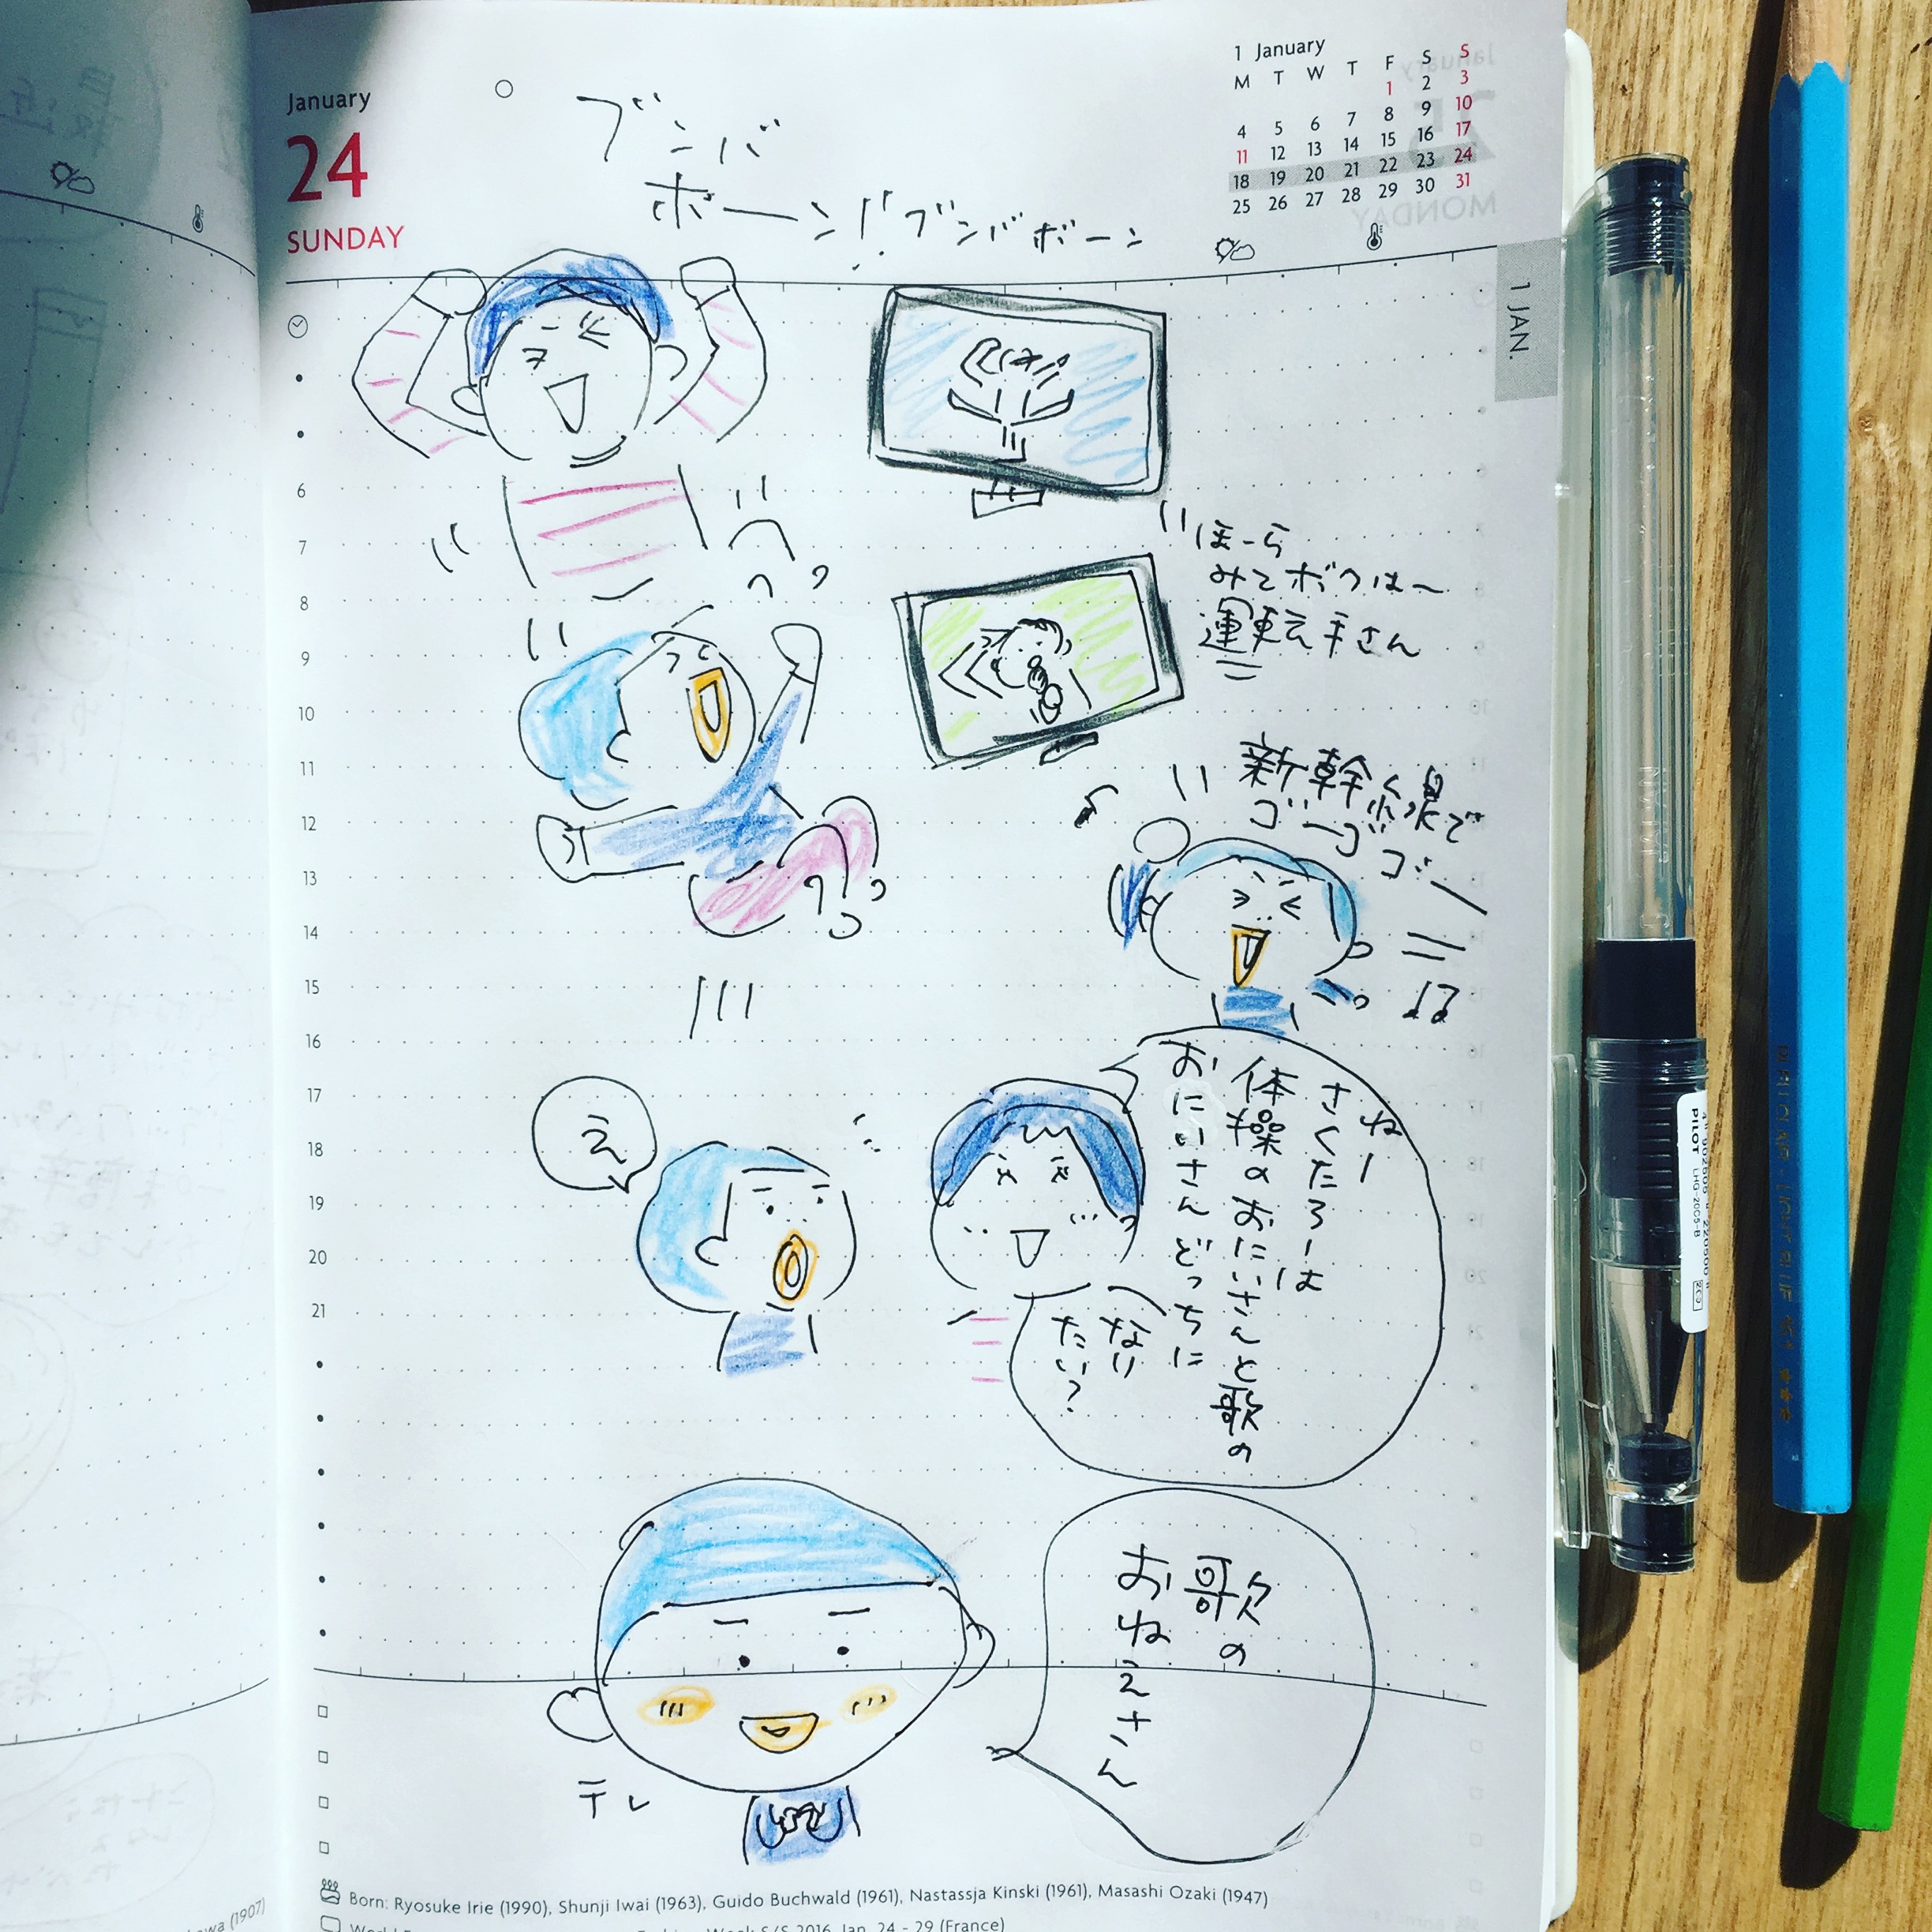 January
24
SUNDAY
ブンバ
ボーン!! ブンバボーン
1 January
M T W T F S S
1 2 3
4 5 6 7 8 9 10
11 12 13 14 15 16 17
18 19 20 21 22 23 24
25 26 27 28 29 30 31
1 JAN.
ほーら
みてボクは〜
運転手さん
新幹線で
ゴーゴゴー
6
7
8
9
10
11
12
13
14
15
16
17
18
19
20
21
え
ねー
さくたろーは
体操のおにいさんと歌の
おにいさんどっちに
なり
たい?
歌の
おねえさん
テレ
Born: Ryosuke Irie (1990), Shunji Iwai (1963), Guido Buchwald (1961), Nastassja Kinski (1961), Masashi Ozaki (1947)
Week S/S 2016 Jan. 24 - 29 (France)
(1907)
PILOT
LHG-20C5-B